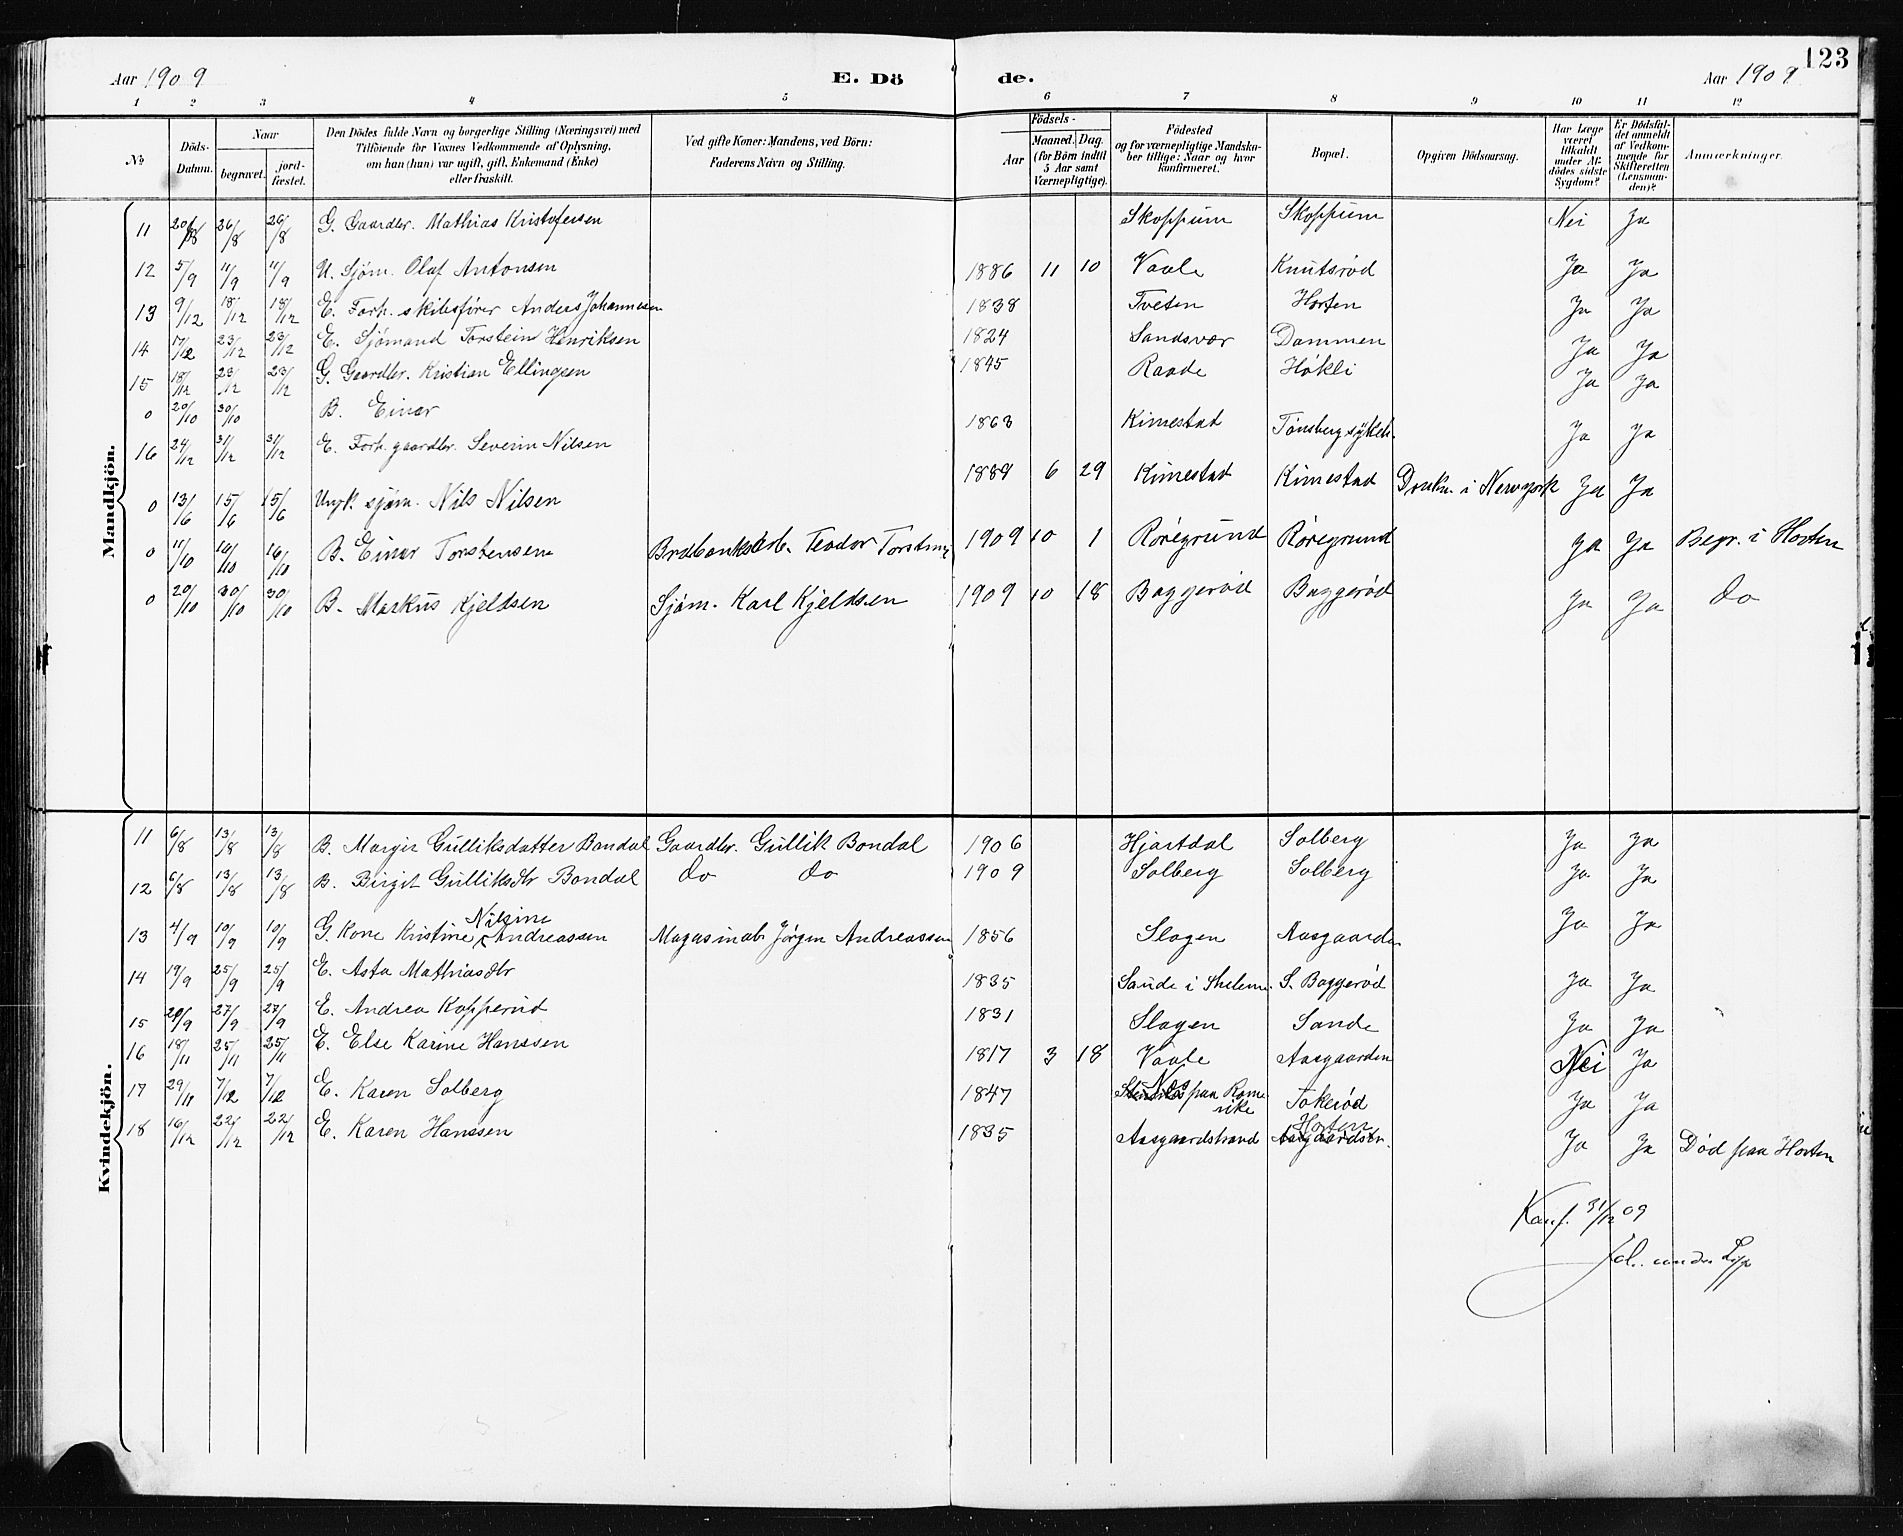 Aar 1909 E. Dö de. Aar 1909 123
1 2 3 4 5 6 7 8 9 10 11 12
No Döds-Datum. Naar begravet. jord-fæstet. Den Dödes fulde Navn og borgerlige Stilling (Næringsvei) med Tilföiende for Voxnes Vedkommende af Oplysning, om han (hun) var ugift, gift, Enkemand (Enke) eller fraskilt. Ved gifte Koner: Mandens, ved Börn: Faderens Navn og Stilling. Födsels- Aar Maaned. Dag. (for Börn indtil 5 Aar samt Værnepligtige). Födested og for værnepligtige Mandska-ber tillige: Naar og hvor konfirmeret. Bopæl. Opgiven Dödsaarsag. Har Læge været tilkaldt under Af-dödes sidste Sygdom? Er Dödsfal-det anmeldt af Vedkom-mende for Skifteretten (Lensman-den)? Anmærkninger.
Mandkjön.
11 20/8 26/8 26/8 G. Gaardbr. Mathias Kristofersen Skoppum Skoppum Nei Ja
12 5/9 11/9 11/9 U. Sjøm. Olaf Antonsen 1886 11 10 Vaale Knutsrød Ja Ja
13 9/12 18/12 18/12 E. Forh. skibsfører Anders Johannesen 1838 Tveten Horten Ja Ja
14 17/12 23/12 23/12 E. Sjømand Torstein Henriksen 1824 Sandsvær Dammen Ja Ja
15 18/12 23/12 23/12 G. Gaardbr. Kristian Ellingsen 1845 Raade Høkli Ja Ja
0 20/10 30/10 B. Einar
16 24/12 31/12 31/12 E. Forh. gaardbr. Severin Nilsen 1863 Kimestad Tønsberg sykeh. Ja Ja
0 13/6 15/6 15/6 Ungk. sjøm. Nils Nilsen 1889 6 29 Kimestad Kimestad Drukn. i Newyork Ja Ja
0 11/10 16/10 16/10 B. Einar Torstensen Teodor Torstensen 1909 10 1 Røregrund Røregrund Ja Ja Begr. i Horten
0 20/10 30/10 30/10 B. Markus Kjeldsen Sjøm. Karl Kjeldsen 1909 10 18 Baggerød Baggerød Ja Ja do
Kvindekjön.
11 6/8 13/8 13/8 B. Margit Gulliksdatter Bondal Gaardbr. Gullik Bondal 1906 Hjartdal Solberg Ja Ja
12 6/8 13/8 13/8 B. Birgit Gulliksdtr Bondal do do 1909 Solberg Solberg Ja Ja
13 4/9 10/9 10/9 G. Kone Kristine Nilsine Andreassen Magasinarb. Jørgen Andreassen 1856 Slagen Aasgaarden Ja Ja
14 19/9 25/9 25/9 E. Asta Mathiasdtr 1835 Saude i Thelem. S. Baggerød Ja Ja
15 20/9 27/9 27/9 E. Andrea Kopperud 1831 Slagen Sande Ja Ja
16 18/11 25/11 25/11 E. Else Karine Hanssen 1817 3 18 Vaale Aasgaarden Nei Ja
17 29/11 7/12 7/12 E. Karen Solberg 1847 Nes paa Rome rike Tokerød Ja Ja
18 16/12 22/12 22/12 E. Karen Hanssen 1835 Aasgaardstrand Horten Aasgaardstr. Ja Ja Død paa Horten
Konf. 31/12 09